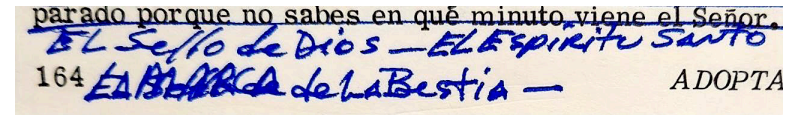 parado porque no sabes en qué minuto viene el Señor.
EL Sello de Dios — EL Espíritu Santo
164 LA MARCA de La Bestia — ADOPTA